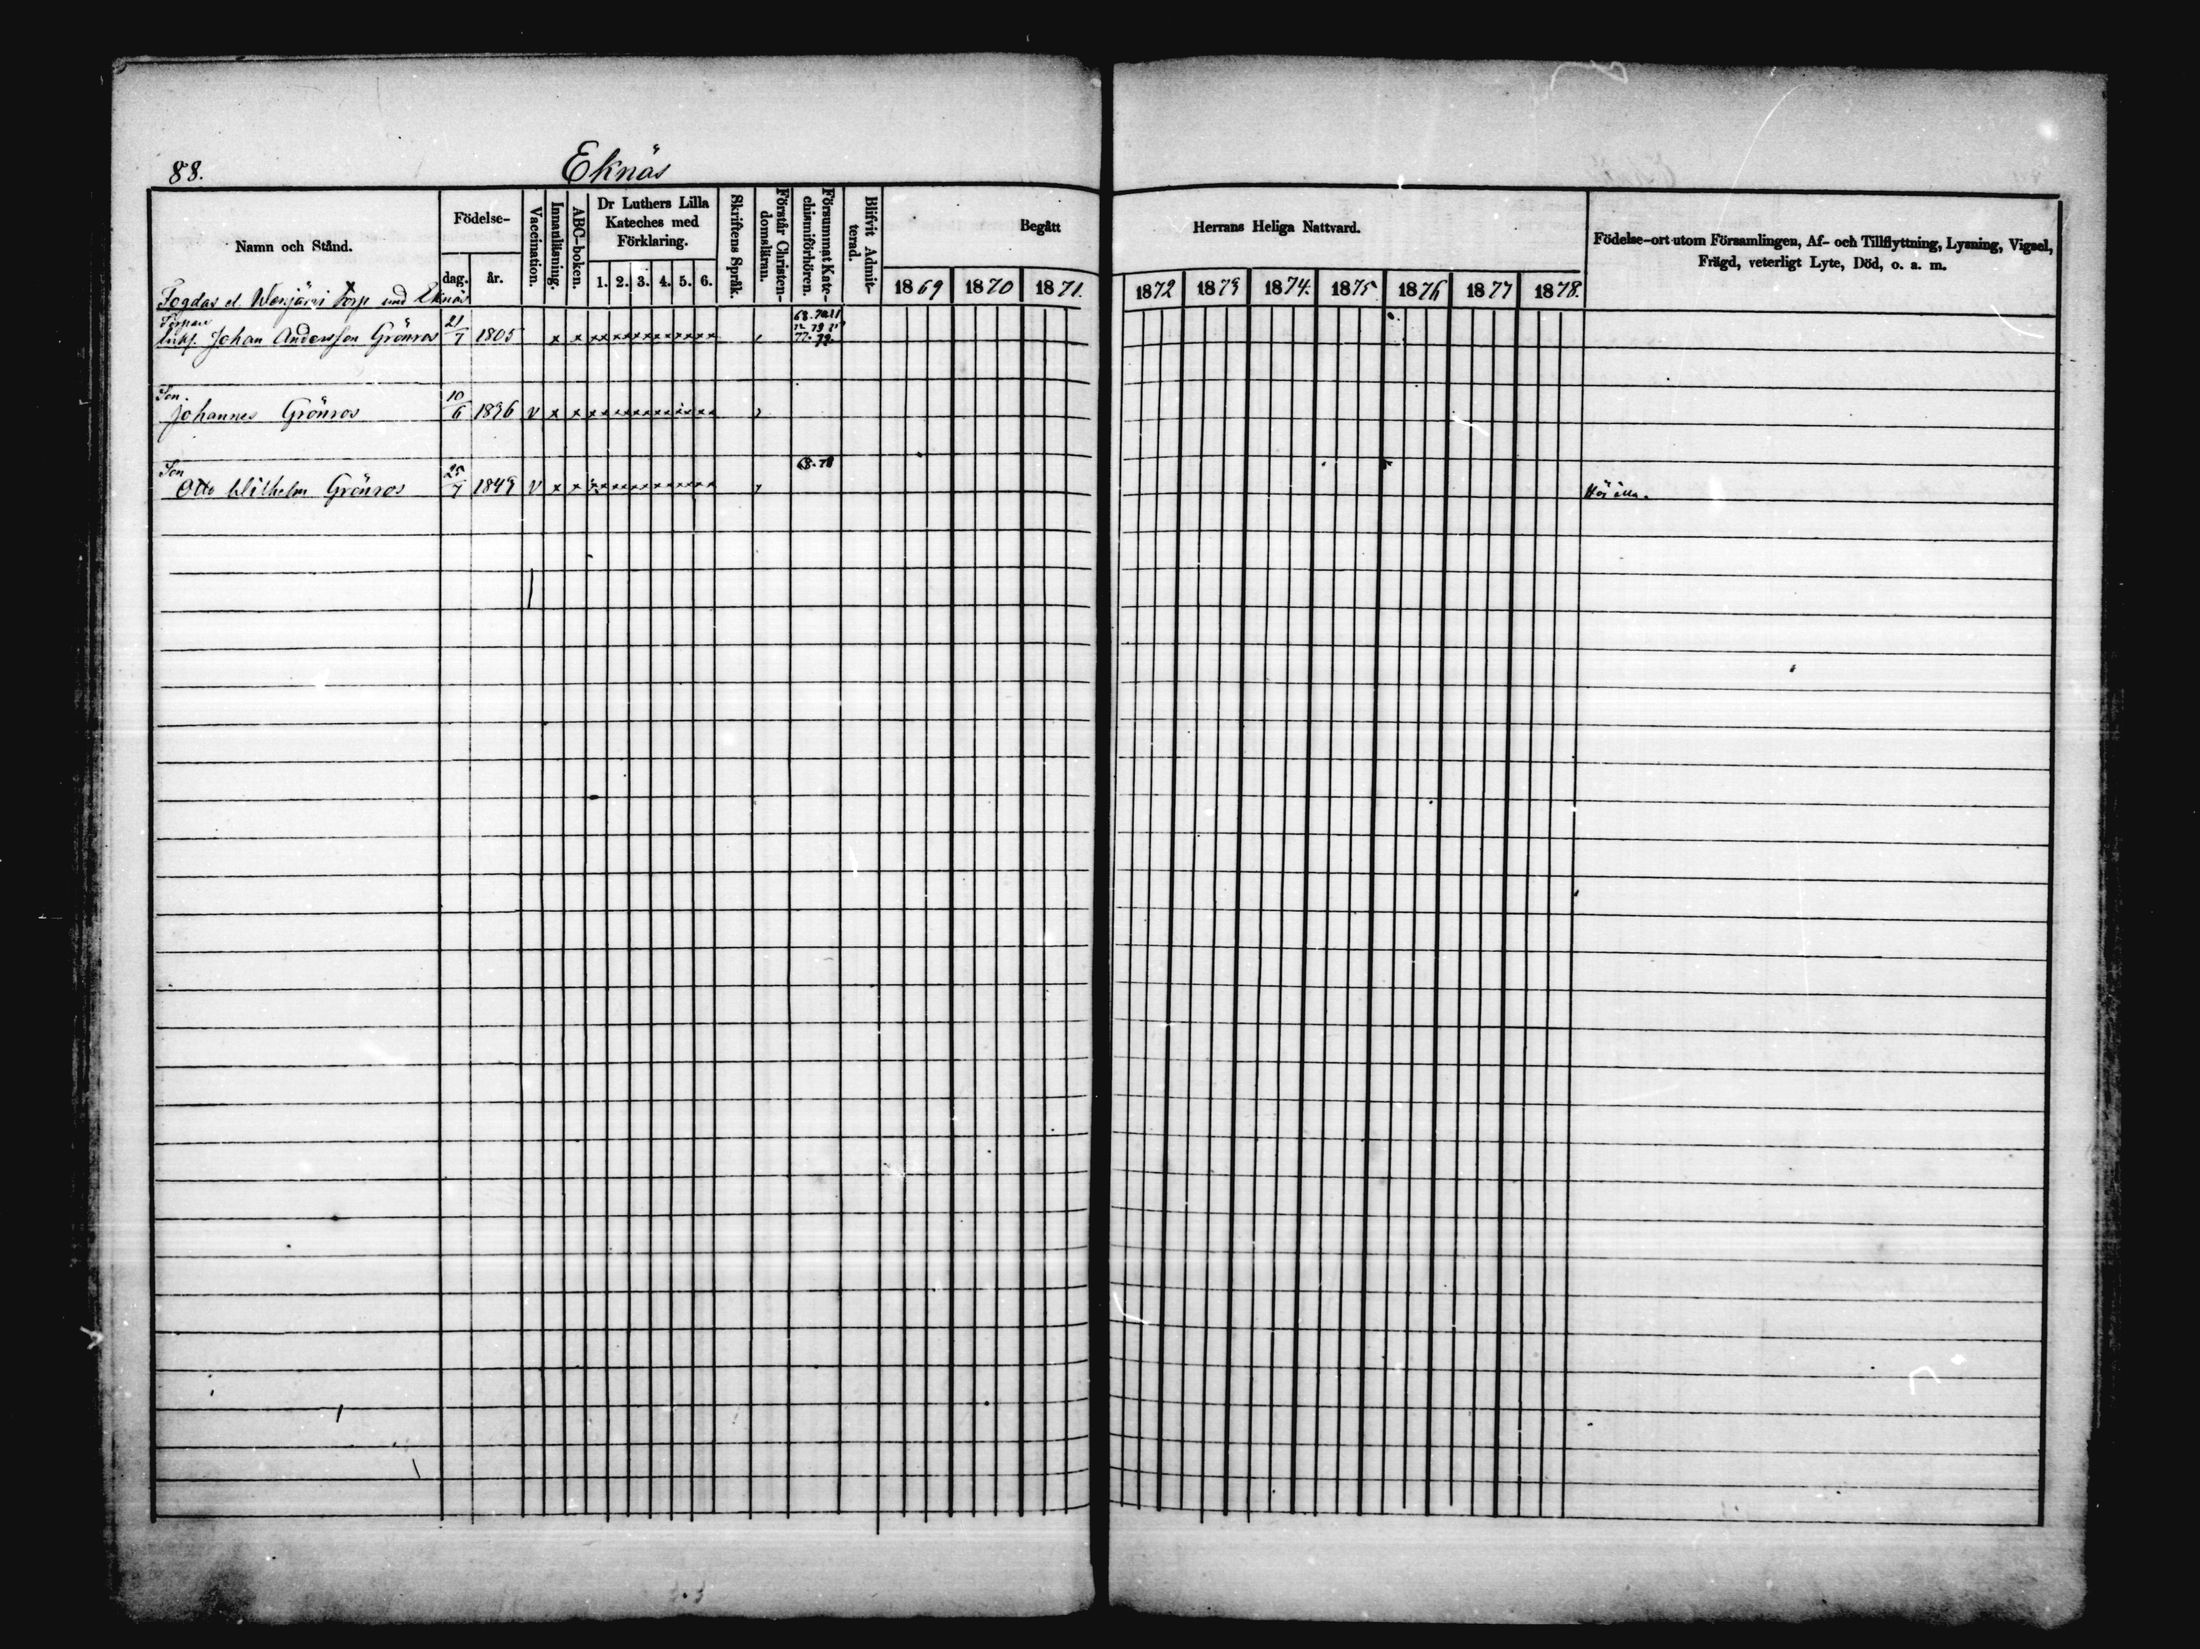 88.
Eknäs
Namn och Stånd.
Födelse-
dag.
år.
Vaccination.
Innanläsning.
ABC-boken.
Dr Luthers Lilla
Kateches med
Förklaring.
1. 2. 3. 4. 5. 6.
Skriftens Språk.
Förstår Christen-
domsläran.
Försummat Kate-
chismiförhören.
Blifvit Admit-
terad.
Begått
1869 1870 1871.
Herrans Heliga Nattvard.
1872 1873 1874. 1875 1876 1877 1878.
Födelse-ort utom Församlingen, Af- och Tillflyttning, Lysning, Vigsel,
Frägd, veterligt Lyte, Död, o. a. m.
Torp und Eknäs
Torpare
Johan Andersson Grönros 21/7 1805 x x x x x x x x x x x x x x
Son
Johannes Grönros 10/6 1836 v x x x x x x x x x x x x x x
68. 78
Son
Otto Wilhelm Grönros 25/7 1849 v x x x x x x x x x x x x x x
Hör illa.